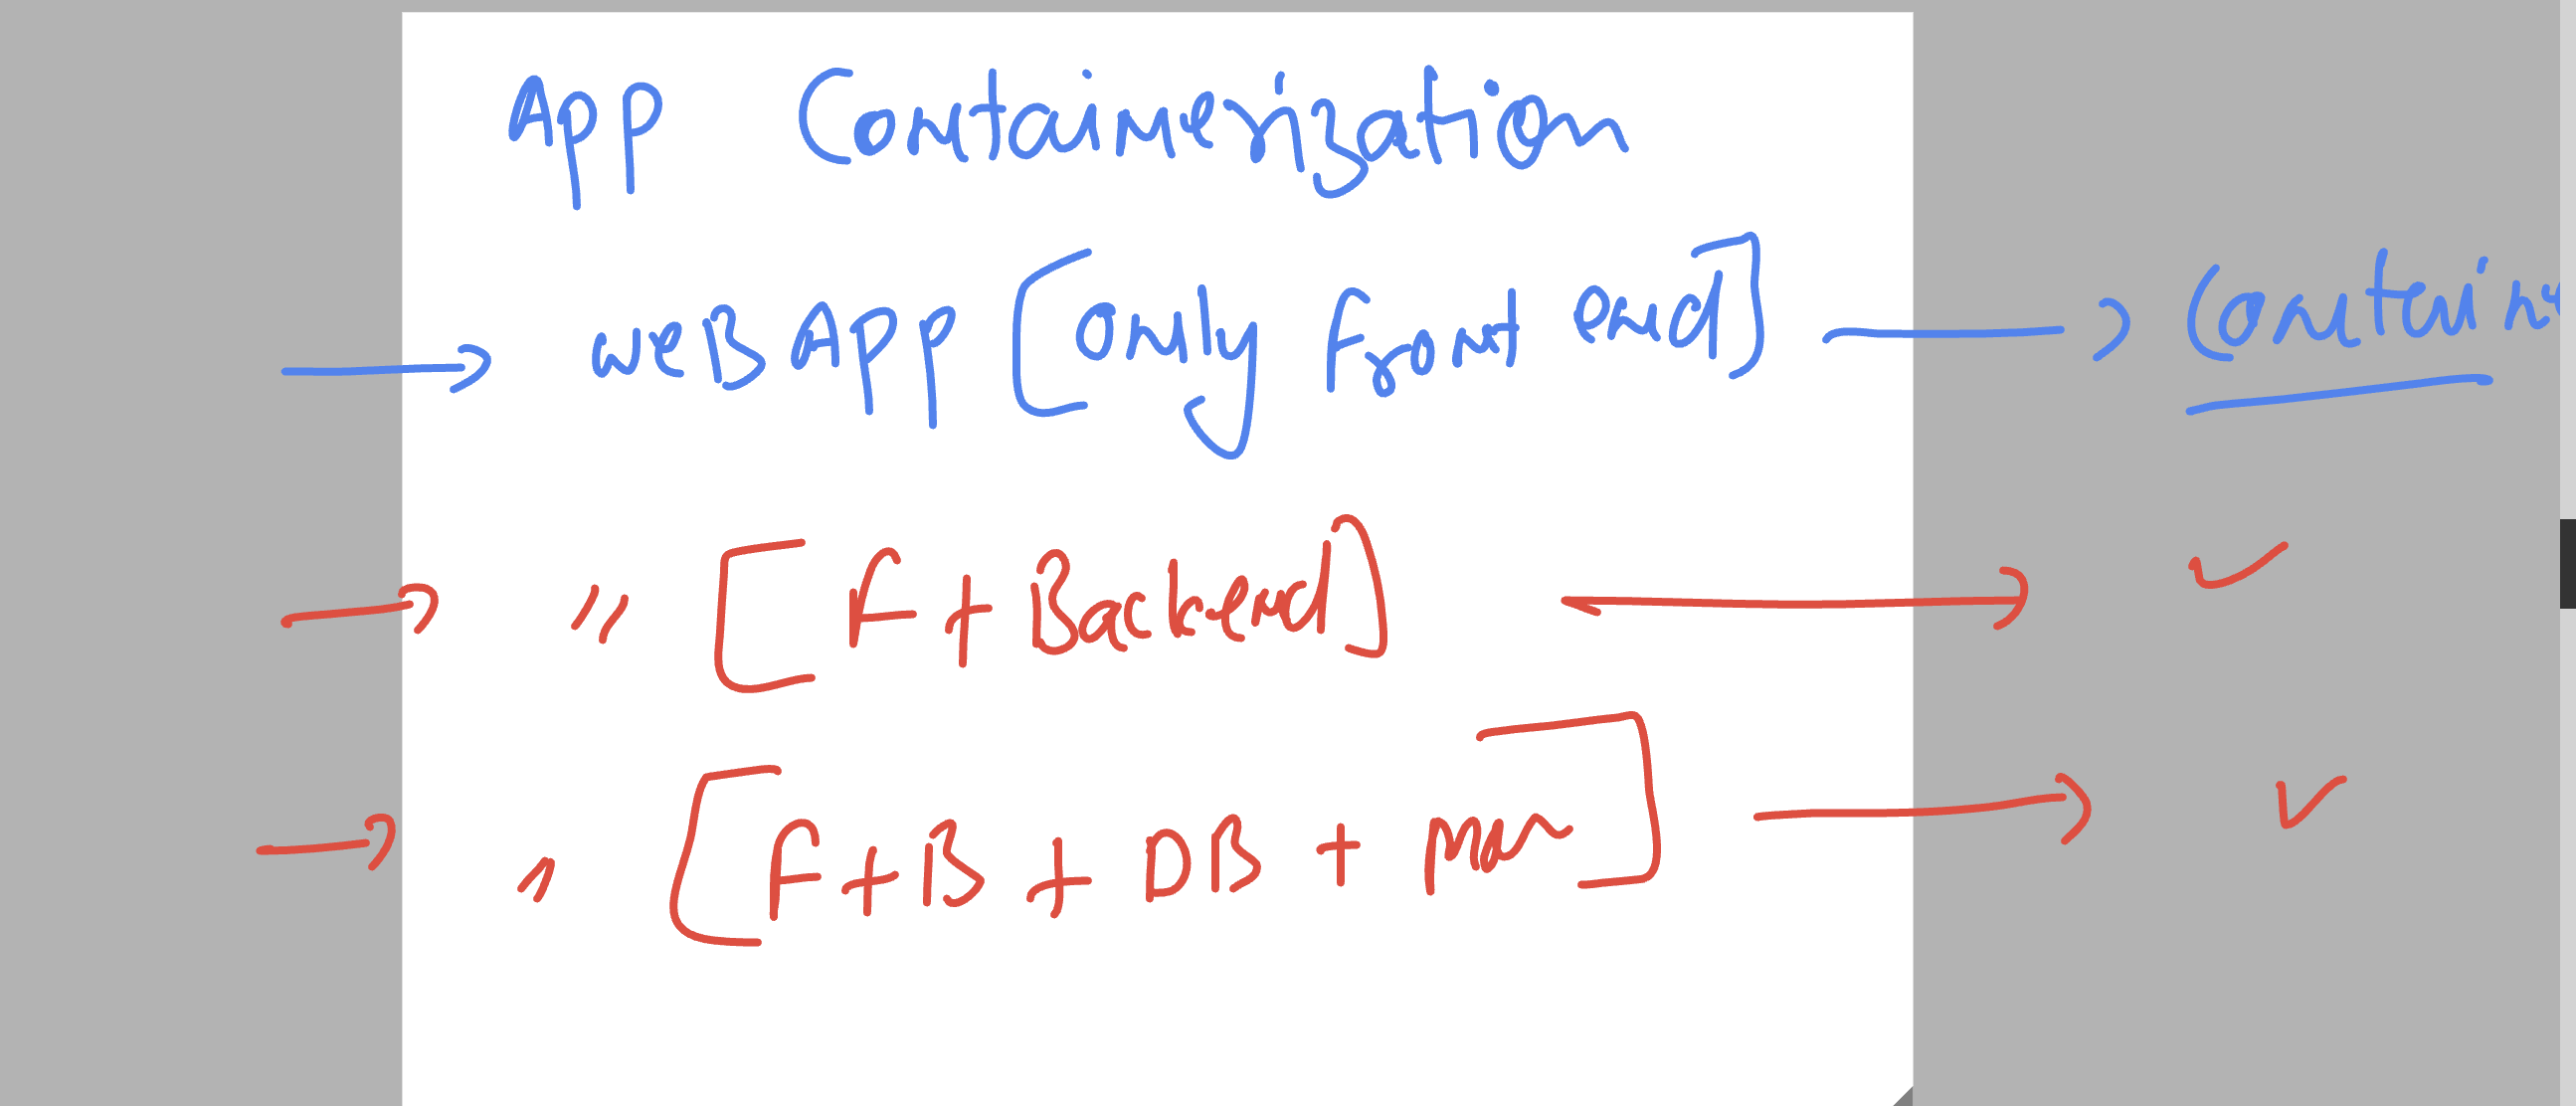 App Containerization
→ weB App [only front end] → Containe
→ " [F + Backend] ↔ ✓
→ " [F + B + DB + ] → ✓